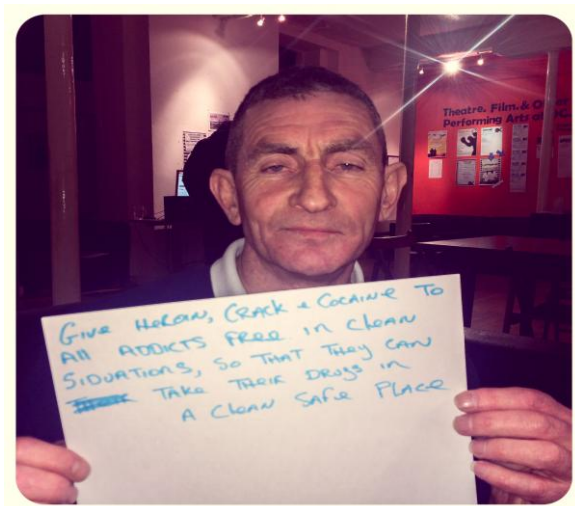 Theatre, Film, &
Performing Arts at
GIVE HEROIN, CRACK + COCAINE TO
All ADDICTS FREE in Clean
SIDUATIONS, SO THAT THEY CAN
TAKE THEIR DRUGS in
A Clean SAFE PLACE